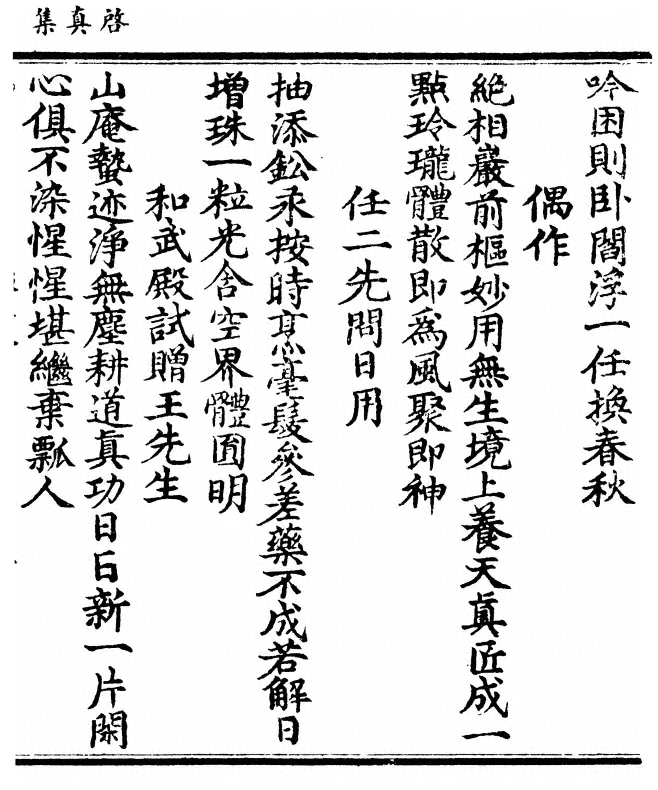 啓真集
吟困則卧閻浮一任換春秋
偶作
絶相巖前樞妙用無生境上養天真匠成一
點玲瓏體散即為風聚即神
任二先問日用
抽添鈆汞按時烹毫髮參差藥不成若解日
增珠一粒光含空界體囫明
和武殿試贈王先生
山庵蟄迹淨無塵耕道真功日日新一片閑
心俱不染惺惺堪繼棄瓢人